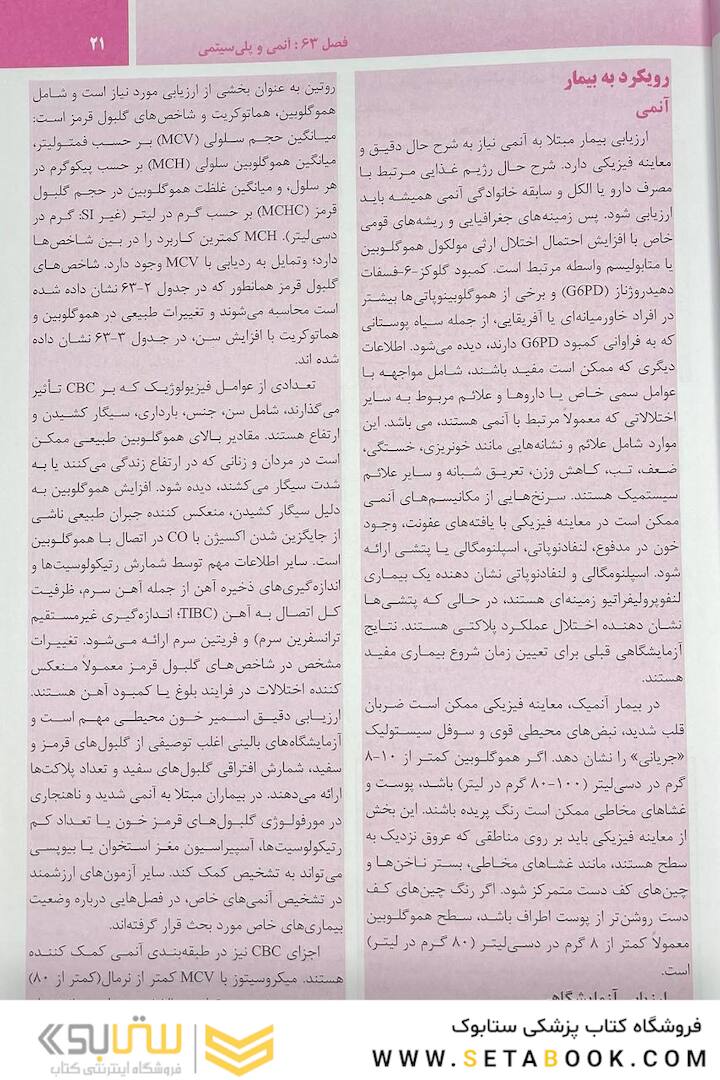 فصل ۶۳: آنمی و پلی‌سیتمی
۲۱
رویکرد به بیمار
آنمی
ارزیابی بیمار مبتلا به آنمی نیاز به شرح حال دقیق و
معاینه فیزیکی دارد. شرح حال رژیم غذایی مرتبط با
مصرف دارو یا الکل و سابقه خانوادگی آنمی همیشه باید
ارزیابی شود. پس زمینه‌های جغرافیایی و ریشه‌های قومی
خاص با افزایش احتمال اختلال ارثی مولکول هموگلوبین
یا متابولیسم واسطه مرتبط است. کمبود گلوکز-۶-فسفات
دهیدروژناز (G6PD) و برخی از هموگلوبینوپاتی‌ها بیشتر
در افراد خاورمیانه‌ای یا آفریقایی، از جمله سیاه پوستانی
که به فراوانی کمبود G6PD دارند، دیده می‌شود. اطلاعات
دیگری که ممکن است مفید باشند، شامل مواجهه با
عوامل سمی خاص یا داروها و علائم مربوط به سایر
اختلالاتی که معمولاً مرتبط با آنمی هستند، می باشد. این
موارد شامل علائم و نشانه‌هایی مانند خونریزی، خستگی،
ضعف، تب، کاهش وزن، تعریق شبانه و سایر علائم
سیستمیک هستند. سرنخ‌هایی از مکانیسم‌های آنمی
ممکن است در معاینه فیزیکی با یافته‌های عفونت، وجود
خون در مدفوع، لنفادنوپاتی، اسپلنومگالی یا پتشی ارائه
شود. اسپلنومگالی و لنفادنوپاتی نشان دهنده یک بیماری
لنفوپرولیفراتیو زمینه‌ای هستند، در حالی که پتشی‌ها
نشان دهنده اختلال عملکرد پلاکتی هستند. نتایج
آزمایشگاهی قبلی برای تعیین زمان شروع بیماری مفید
هستند.
در بیمار آنمیک، معاینه فیزیکی ممکن است ضربان
قلب شدید، نبض‌های محیطی قوی و سوفل سیستولیک
«جریانی» را نشان دهد. اگر هموگلوبین کمتر از ۱۰-۸
گرم در دسی‌لیتر (۱۰۰-۸۰ گرم در لیتر) باشد، پوست و
غشاهای مخاطی ممکن است رنگ پریده باشند. این بخش
از معاینه فیزیکی باید بر روی مناطقی که عروق نزدیک به
سطح هستند، مانند غشاهای مخاطی، بستر ناخن‌ها و
چین‌های کف دست متمرکز شود. اگر رنگ چین‌های کف
دست روشن‌تر از پوست اطراف باشد، سطح هموگلوبین
معمولاً کمتر از ۸ گرم در دسی‌لیتر (۸۰ گرم در لیتر)
است.
ارزیابی آزمایشگاهی
روتین به عنوان بخشی از ارزیابی مورد نیاز است و شامل
هموگلوبین، هماتوکریت و شاخص‌های گلبول قرمز است:
میانگین حجم سلولی (MCV) بر حسب فمتولیتر،
میانگین هموگلوبین سلولی (MCH) بر حسب پیکوگرم در
هر سلول، و میانگین غلظت هموگلوبین در حجم گلبول
قرمز (MCHC) بر حسب گرم در لیتر (غیر SI: گرم در
دسی‌لیتر). MCH کمترین کاربرد را در بین شاخص‌ها
دارد؛ وتمایل به ردیابی با MCV وجود دارد. شاخص‌های
گلبول قرمز همانطور که در جدول ۲-۶۳ نشان داده شده
است محاسبه می‌شوند و تغییرات طبیعی در هموگلوبین و
هماتوکریت با افزایش سن، در جدول ۳-۶۳ نشان داده
شده اند.
تعدادی از عوامل فیزیولوژیک که بر CBC تأثیر
می‌گذارند، شامل سن، جنس، بارداری، سیگار کشیدن و
ارتفاع هستند. مقادیر بالای هموگلوبین طبیعی ممکن
است در مردان و زنانی که در ارتفاع زندگی می‌کنند یا به
شدت سیگار می‌کشند، دیده شود. افزایش هموگلوبین به
دلیل سیگار کشیدن، منعکس کننده جبران طبیعی ناشی
از جایگزین شدن اکسیژن با CO در اتصال با هموگلوبین
است. سایر اطلاعات مهم توسط شمارش رتیکولوسیت‌ها و
اندازه‌گیری‌های ذخیره آهن از جمله آهن سرم، ظرفیت
کل اتصال به آهن (TIBC؛ اندازه‌گیری غیرمستقیم
ترانسفرین سرم) و فریتین سرم ارائه می‌شود. تغییرات
مشخص در شاخص‌های گلبول قرمز معمولاً منعکس
کننده اختلالات در فرایند بلوغ یا کمبود آهن هستند.
ارزیابی دقیق اسمیر خون محیطی مهم است و
آزمایشگاه‌های بالینی اغلب توصیفی از گلبول‌های قرمز و
سفید، شمارش افتراقی گلبول‌های سفید و تعداد پلاکت‌ها
ارائه می‌دهند. در بیماران مبتلا به آنمی شدید و ناهنجاری
در مورفولوژی گلبول‌های قرمز خون یا تعداد کم
رتیکولوسیت‌ها، آسپیراسیون مغز استخوان یا بیوپسی
می‌تواند به تشخیص کمک کند. سایر آزمون‌های ارزشمند
در تشخیص آنمی‌های خاص، در فصل‌هایی درباره وضعیت
بیماری‌های خاص مورد بحث قرار گرفته‌اند.
اجزای CBC نیز در طبقه‌بندی آنمی کمک کننده
هستند. میکروسیتوز با MCV کمتر از نرمال(کمتر از ۸۰)
فروشگاه کتاب پزشکی ستابوک
WWW.SETABOOK.COM
ستابوک
فروشگاه اینترنتی کتاب